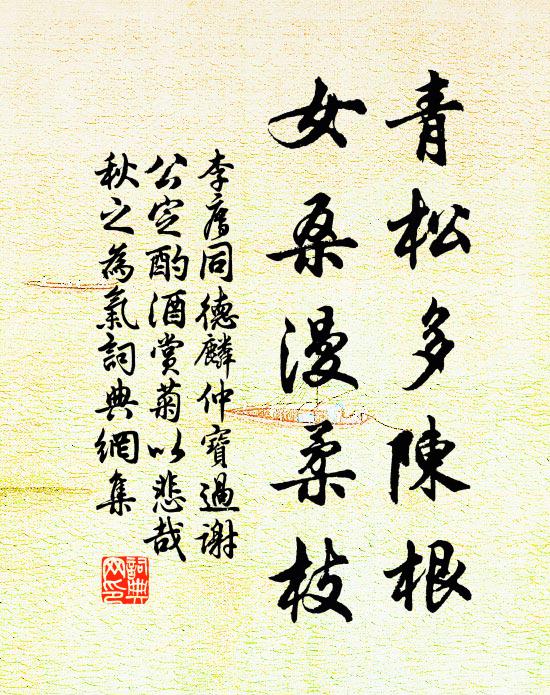 青松多陳根
女桑漫柔枝
李廌同德麟仲寶過謝
公定酌酒賞菊以悲哉
秋之為氣詞典網集
詞典
网印